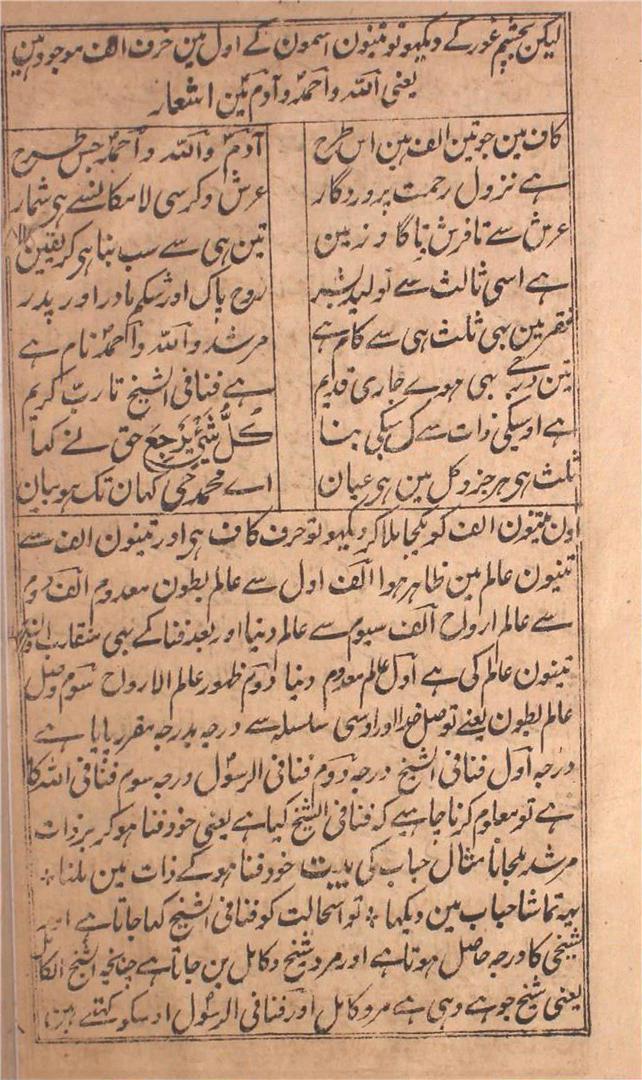 لیکن بچشم غور کے دیکھو تو تینون اسمون کے اول مین حرف الف موجود ہین
یعنی اللہ و احمدؐ و آدمؑ مین اشعار
کاف مین جو تین الف ہین اس طرح آدمؑ و اللہ و احمدؐ جس طرح
ہے نزول رحمت پروردگار عرش و کرسی لامکانسے ہی شمار
عرش سے تا فرش تا گا و زمین تین ہی سے سب بنا ہی کر یقین
ہے اسی ثالث سے تولید بشر روح پاک اور شکم مادر اور پدر
فقر مین بھی ثلث ہی سے کام ہے مرشد و اللہ و احمدؐ نام ہے
تین درجے بھی ہوے جاری قدیم ہے فنا فی الشیخ تا ربّ کریم
ہے اوسیکی ذات سے سبکی بنا کُلُّ شَیْءٍ یَرْجِعُ حق نے کہا
ثلث ہی ہر جزو کل مین ہی عیان اے محمد حی کہان تک ہو بیان
اون تینون الف کو یکجا ملا کر دیکھو تو حرف کاف ہی اور تینون الف سے
تینون عالم مین ظاہر ہوا الف اول سے عالم بطون معدوم الف دوم
سے عالم ارواح الف سیوم سے عالم دنیا اور بعد فنا کے بھی
تینون عالم کی ہے اول عالم معدوم دنیا دوم ظہور عالم الارواح سوم وصل
عالم بطون یعنے توصل خدا اور اوسی سلسلہ سے درجہ بدرجہ مقرر پایا ہے
درجہ اول فنا فی الشیخ درجہ دوم فنا فی الرسول درجہ سوم فنا فی اللہ کا
ہے تو معلوم کرنا چاہیے کہ فنا فی الشیخ کیا ہے یعنی خود فنا ہو کر بر ذات
مرشد ملجانا مثال حباب کی بیت خود فنا ہو کے ذات مین ملنا *
یہ تماشا حباب مین دیکھا * تو اسحالت کو فنا فی الشیخ کہا جاتا ہے اور
شیخی کا درجہ حاصل ہوتا ہے اور مرد شیخ و کامل بن جاتا ہے چنانچہ الشیخ الکامل
یعنی شیخ جو ہے وہی ہے مرد کامل اور فنا فی الرسول اوسکو کہتے ہین